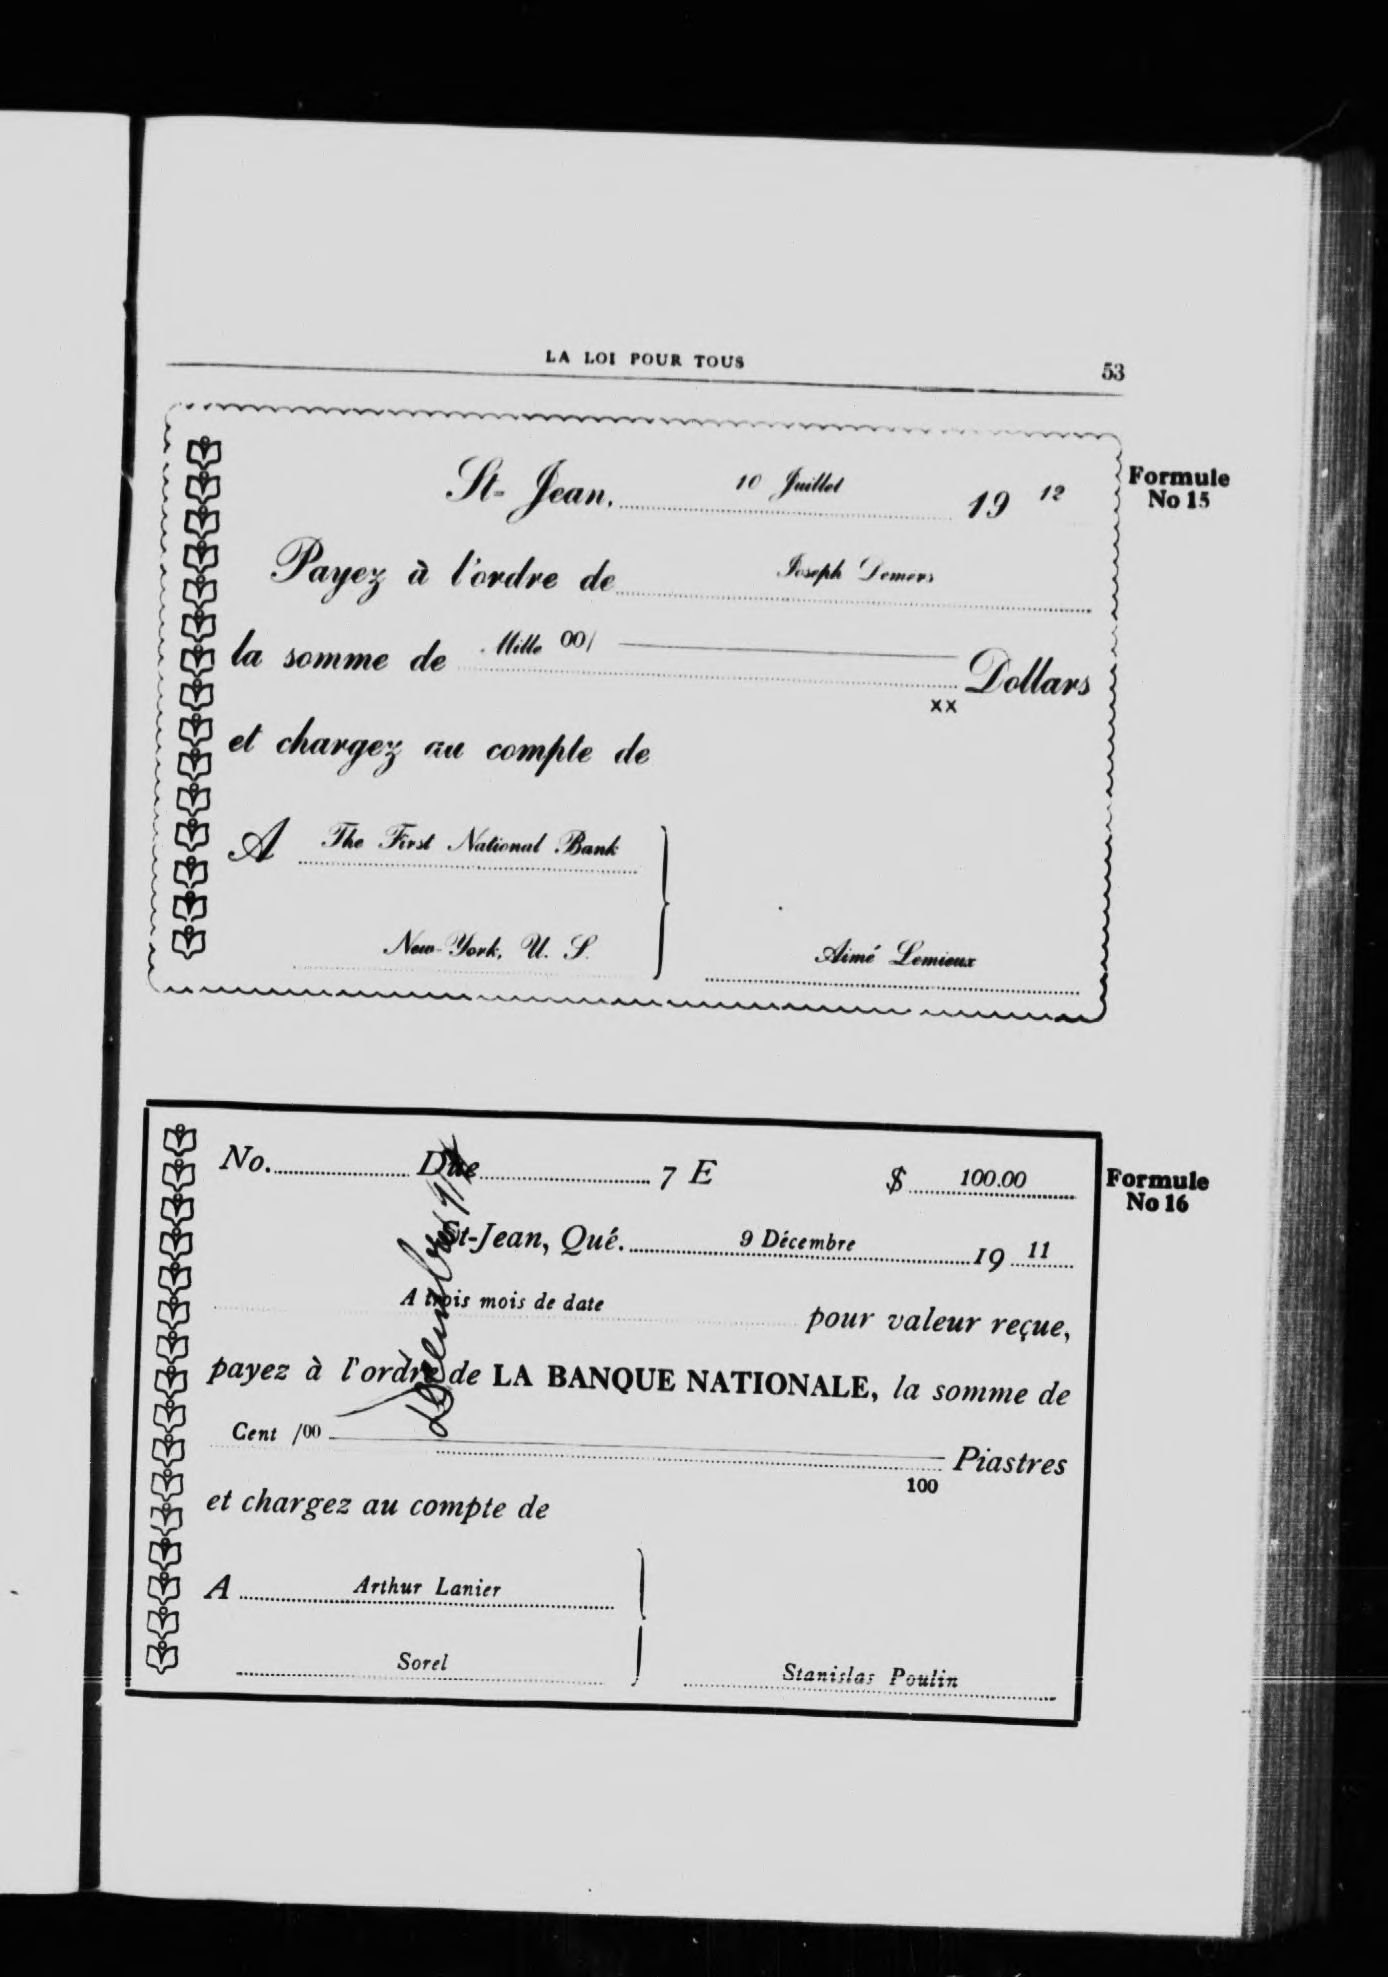 LA LOI POUR TOUS 53
Formule
No 15
St-Jean, 10 Juillet 19 12
Payez à l'ordre de Joseph Demers
la somme de Mille 00/ Dollars
xx
et chargez au compte de
A The First National Bank
New-York, U. S.
Aimé Lemieux
Formule
No 16
No. Due 7 E $ 100.00
St-Jean, Qué. 9 Décembre 19 11
A trois mois de date pour valeur reçue,
payez à l'ordre de LA BANQUE NATIONALE, la somme de
Cent /00 Piastres
100
et chargez au compte de
A Arthur Lanier
Sorel
Stanislas Poulin